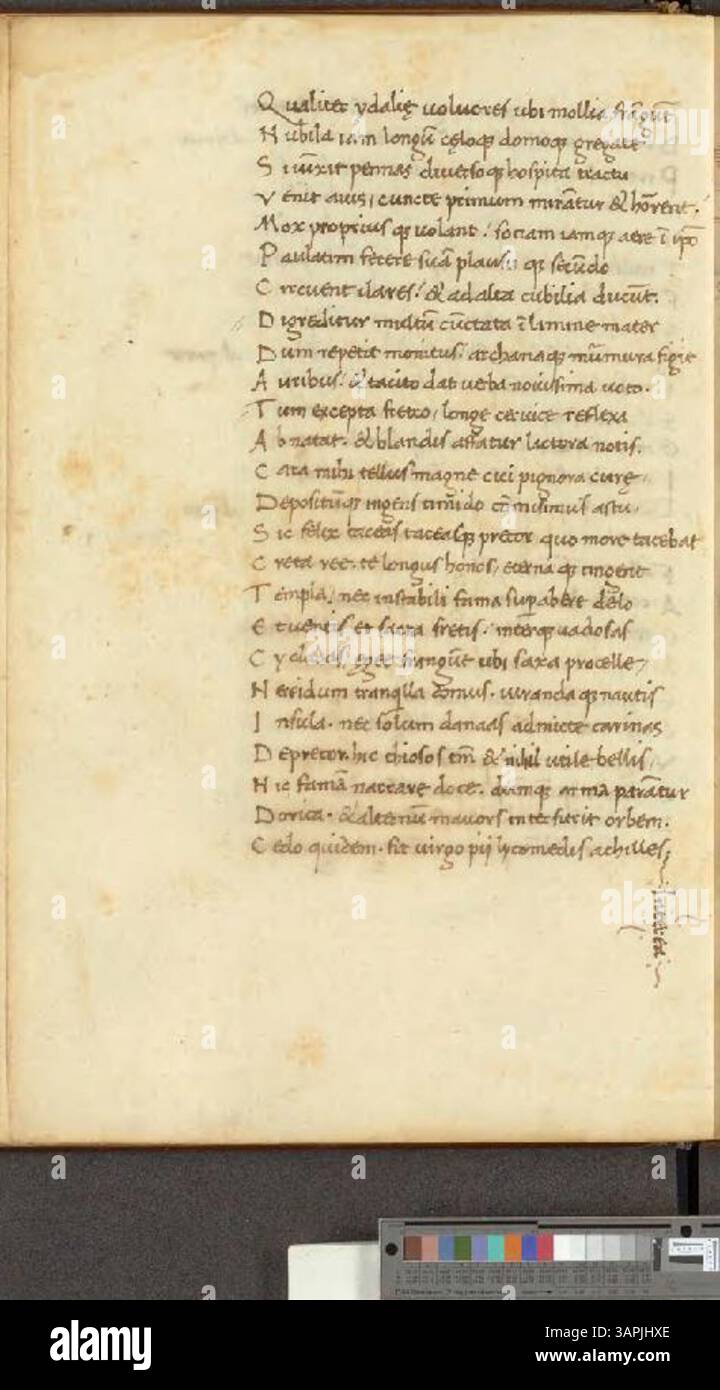 Qualiter ydalię uolucres ubi mollia frāgūt
Nubila iam longū cęloq̃ domoq̃ gregate
Si iūxit pennas diuersoq̃ hospita tractu
Venit auis, cuncte primum mirātur & hōrrent.
Mox propius q̃ uolant / sociam iamq̃ aere ī ipō
Paulatim fecere suā plausu q̃ secūdo
Circueunt ilares / & ad alta cubilia ducūt.
Digreditur multū cūctata ī limine mater
Dum repetit monitus / archanaq̃ mūmura figit
Auribus / & tacito dat uerba nouissima uoto.
Tum excepta freto / longe ceruice reflexa
Abnatat. & blandis affatur lictora notis.
Cara mihi tellus magne cui pignora curę
Depositūq̃ ingens timido cōmisimus astu
Sis felix taceasq̃ precor quo more tacebat
Creta ree. te longus honos / eterna q̃ cingent
Templa / nec instabili fama supabere delo
Et uentis et sacra fretis / interq̃ uadosas
Cycladas, egee frangūt ubi saxa procelle
Nereidum tranq̃lla domus. iuranda q̃ nautis
Insula. nec solum danaas admicte carinas
Deprecor. hic thiosos tm̄ & nihil utile bellis
Hic famā narrare doce. dumq̃ arma parātur
Dorica. & alternū mauors interfurit orbem.
Cedo quidem. fit uirgo pij lycomedis achilles;
alamy
Image ID: 3APJHXE
www.alamy.com